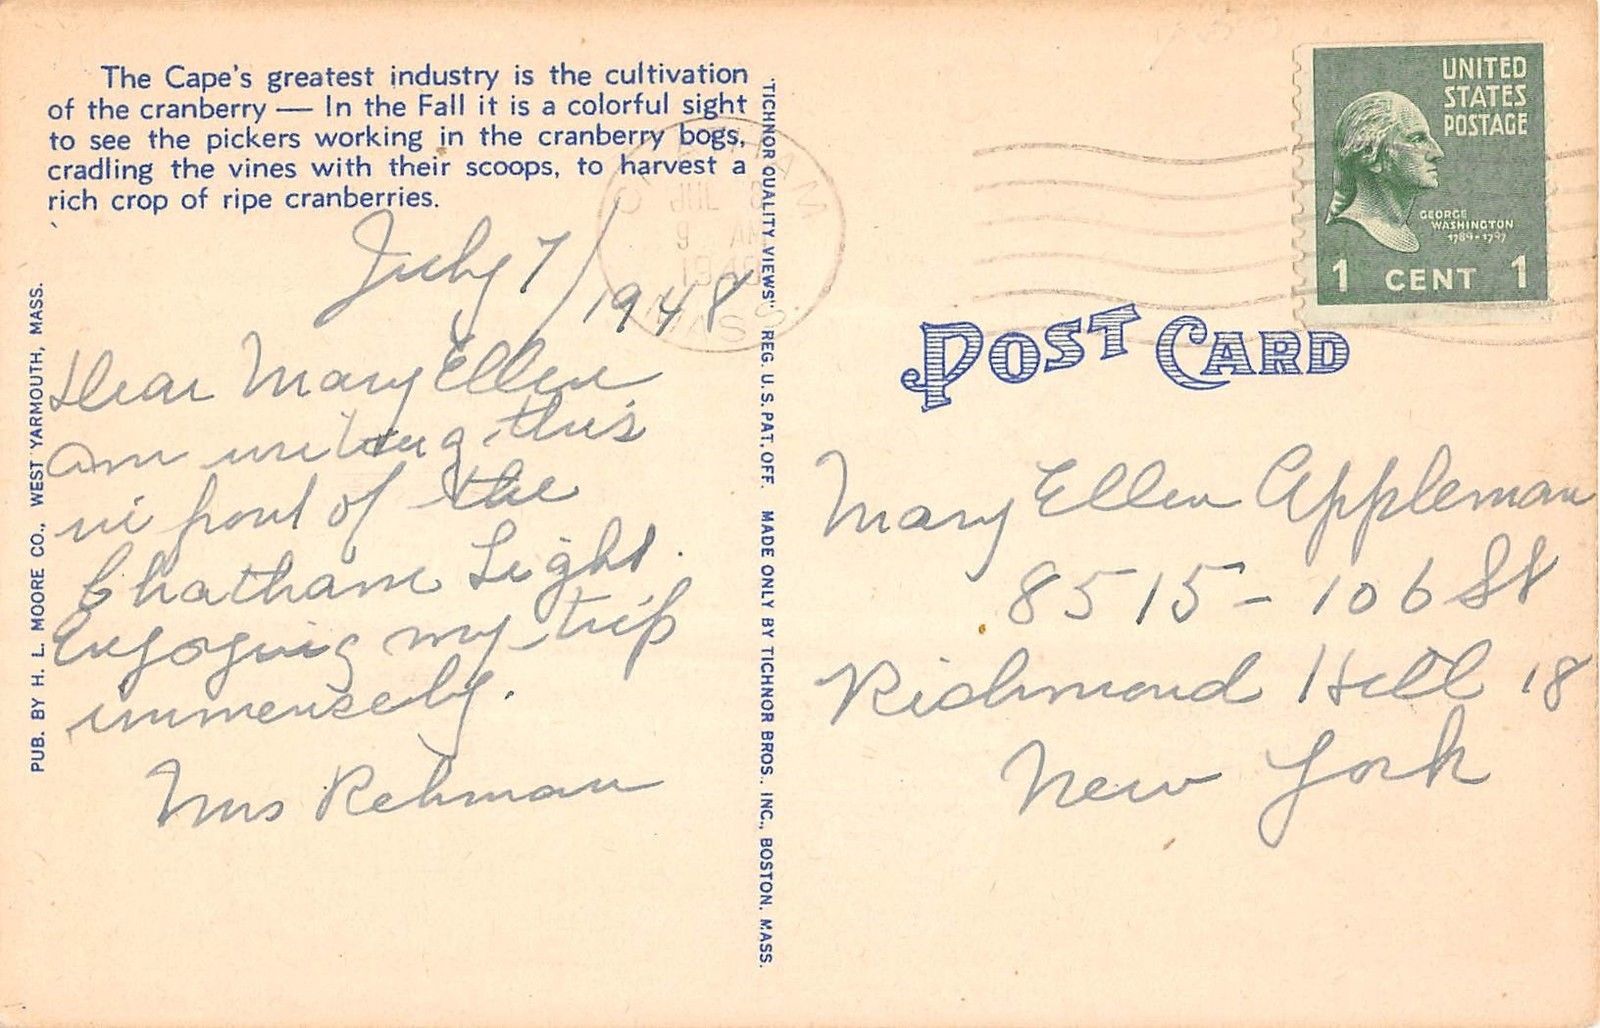 The Cape's greatest industry is the cultivation
of the cranberry — In the Fall it is a colorful sight
to see the pickers working in the cranberry bogs,
cradling the vines with their scoops, to harvest a
rich crop of ripe cranberries.
July 7/1948
Dear Mary Ellen
am writing this
in front of the
Chatham Light.
Enjoying my trip
immensely.
Mrs Rehman
PUB. BY H. L. MOORE CO., WEST YARMOUTH, MASS.
TICHNOR QUALITY VIEWS" REG. U. S. PAT. OFF. MADE ONLY BY TICHNOR BROS., INC., BOSTON, MASS.
CHATHAM
JUL 8
9 AM
1948
MASS.
UNITED
STATES
POSTAGE
GEORGE
WASHINGTON
1789-1797
1 CENT 1
POST CARD
Mary Ellen Appleman
8515 - 106 St
Richmond Hill 18
New York